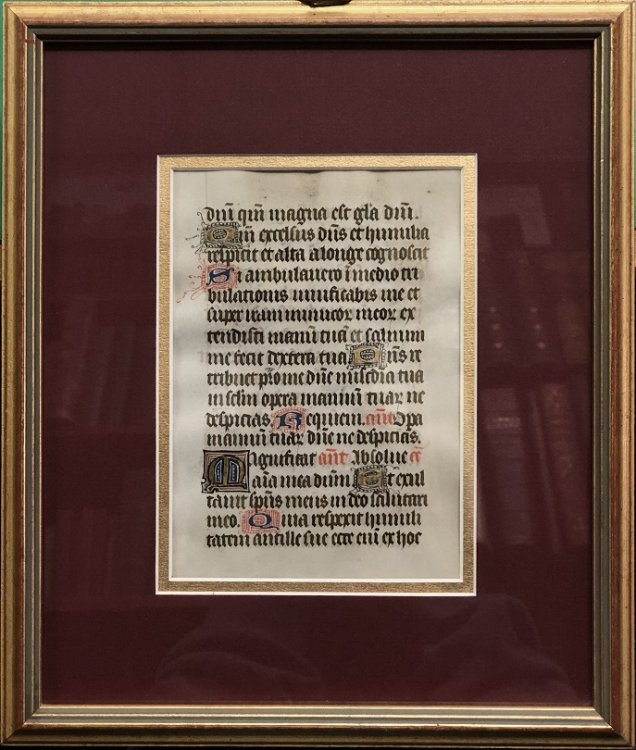 dnı qm magna est gla dnı.
Qm excelsus dns et humilia
respicit et alta a longe cognoscit
Si ambulavero ī medio tri
bulationis vivificabis me et
super iram inimicor meor ex
tendisti manū tuā et salvum
me fecit dextera tua Dns re
tribuet pro me dne mīsedia tua
in sclm opera manuum tuar ne
despicias. Requiem. ant Opa
manuum tuar dne ne despicias.
Magnificat ant Absolve
aīa mea dnm Et exul
tavit spūs meus in deo salutari
meo. Quia respexit humili
tatem ancille sue ecce eni ex hoc